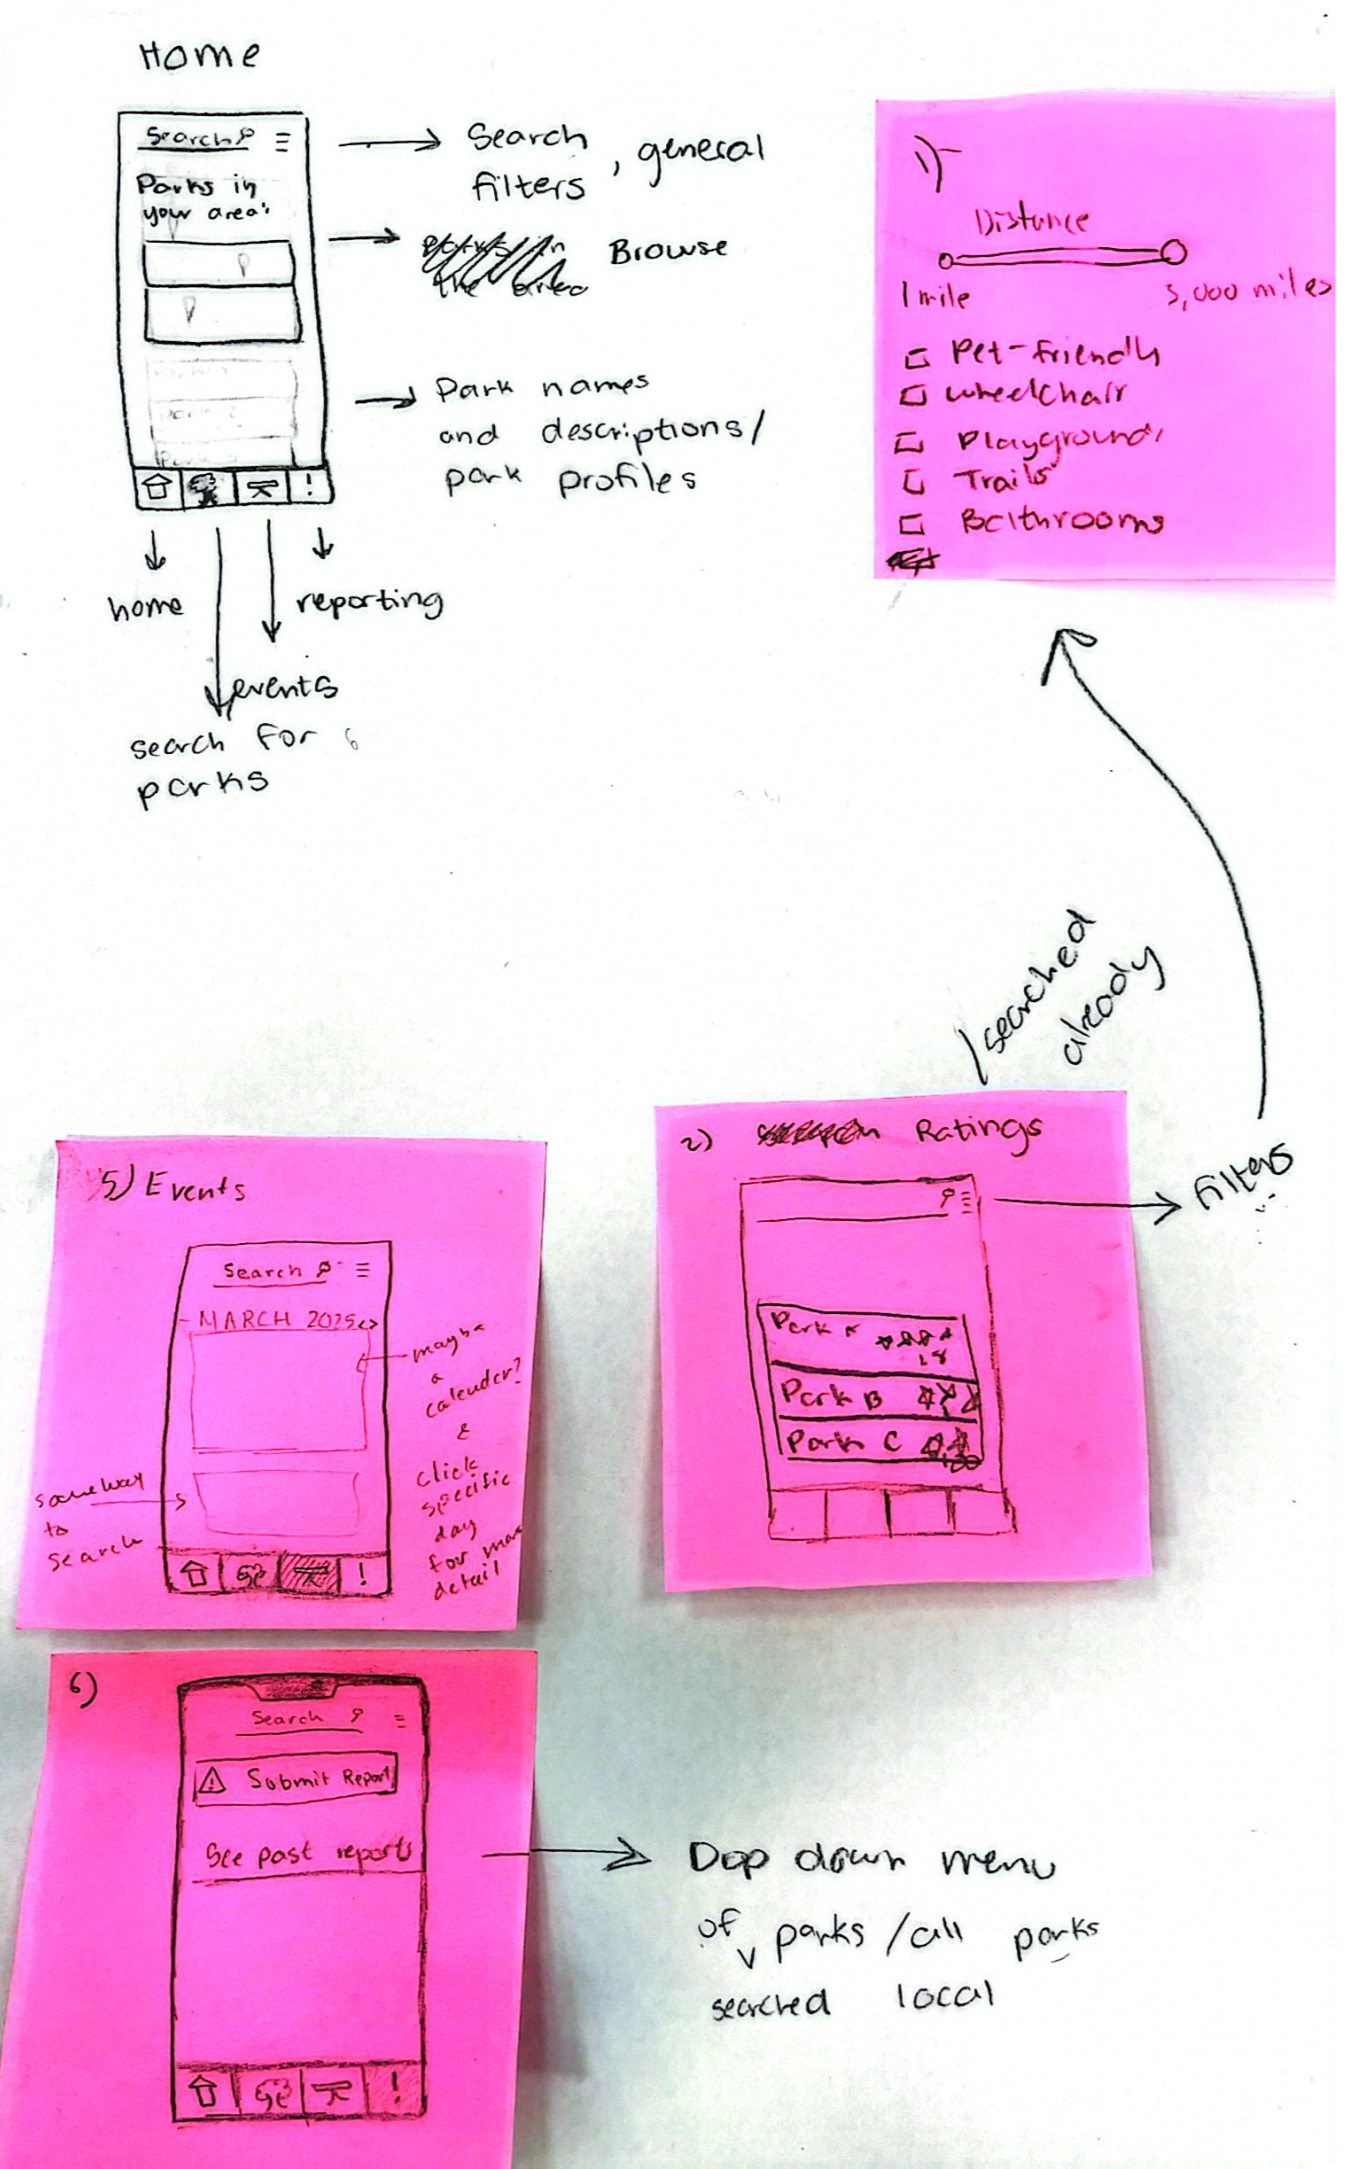 Home
Search
Parks in
your area:
Park 2
Search
filters, general
Browse
Park names
and descriptions/
park profiles
!
home
reporting
events
search for
parks
1)
Distance
1 mile
5,000 miles
Pet-friendly
wheelchair
Playground
Trails
Bathrooms
searched
already
2) Ratings
Filters
Park A
18
Park B
Park C
5) Events
Search
MARCH 2025 <>
maybe
a
calender?
&
click
specific
day
for more
detail
same way
to
search
!
6)
Search
! Submit Report
See past reports
!
Dop down menu
of v parks / all parks
searched local